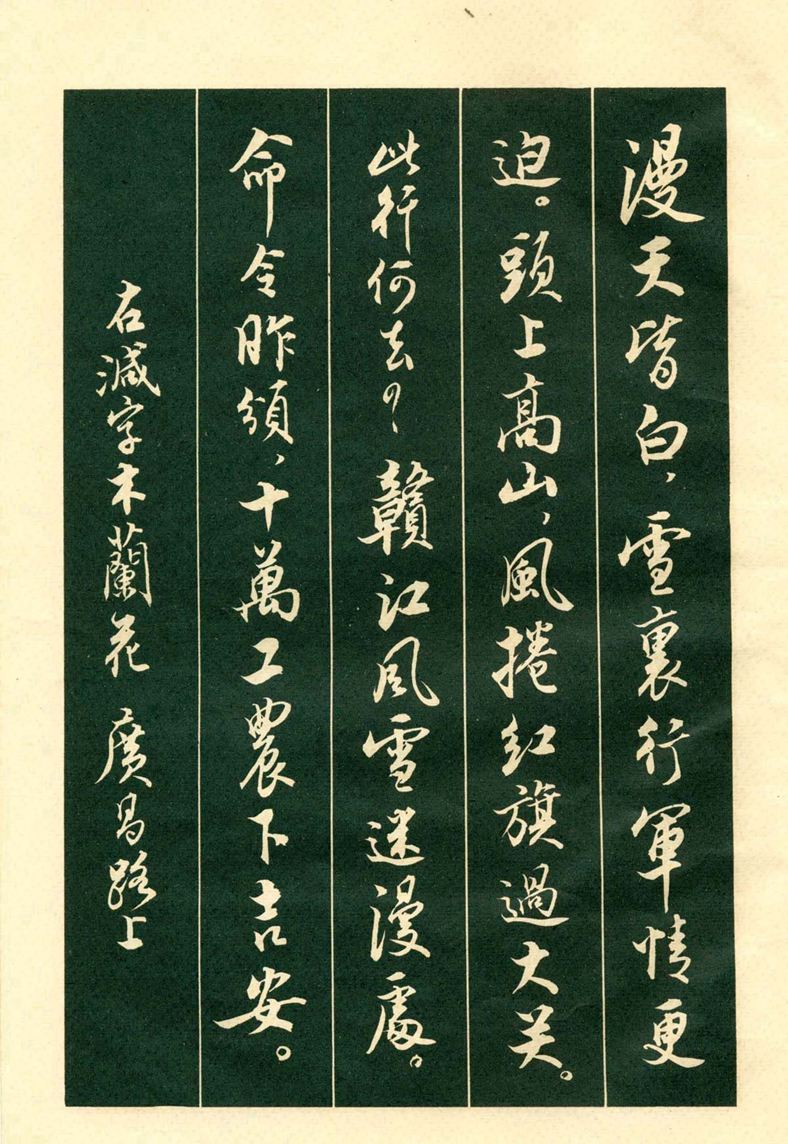 漫天皆白，雪裏行軍情更
迫。頭上高山，風捲红旗過大关。
此行何去？贛江风雪迷漫處。
命令昨頒，十萬工農下吉安。
右減字木蘭花 廣昌路上